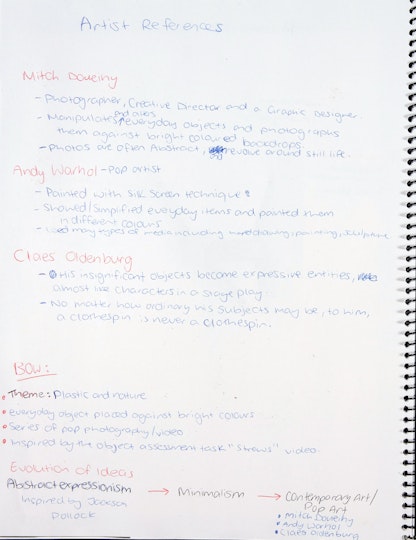 Artist References
Mitch Doweiny
- Photographer, Creative Director and a Graphic Designer.
- Manipulates and alters everyday objects and photographs
them against bright coloured backdrops.
- Photos are often Abstract, revolve around still life.
Andy Warhol - Pop artist
- Painted with Silk Screen technique
- Showed/Simplified everyday items and painted them
in different colours
- Used many types of media including hand drawing, painting, sculpture
Claes Oldenburg
- His insignificant objects become expressive entities,
almost like characters in a stage play.
- No matter how ordinary his subjects may be, to him,
a clothespin is never a clothespin.
BOW:
Theme: Plastic and nature
everyday object plased against bright colours
Series of pop photography/video
Inspired by the object assessment task "Straws" video.
Evolution of ideas
Abstract expressionism → Minimalism → Contemporary Art/
Pop Art
Inspired by Jackson
Pollock
• Mitch Doweiny
• Andy Warhol
• Claes Oldenburg